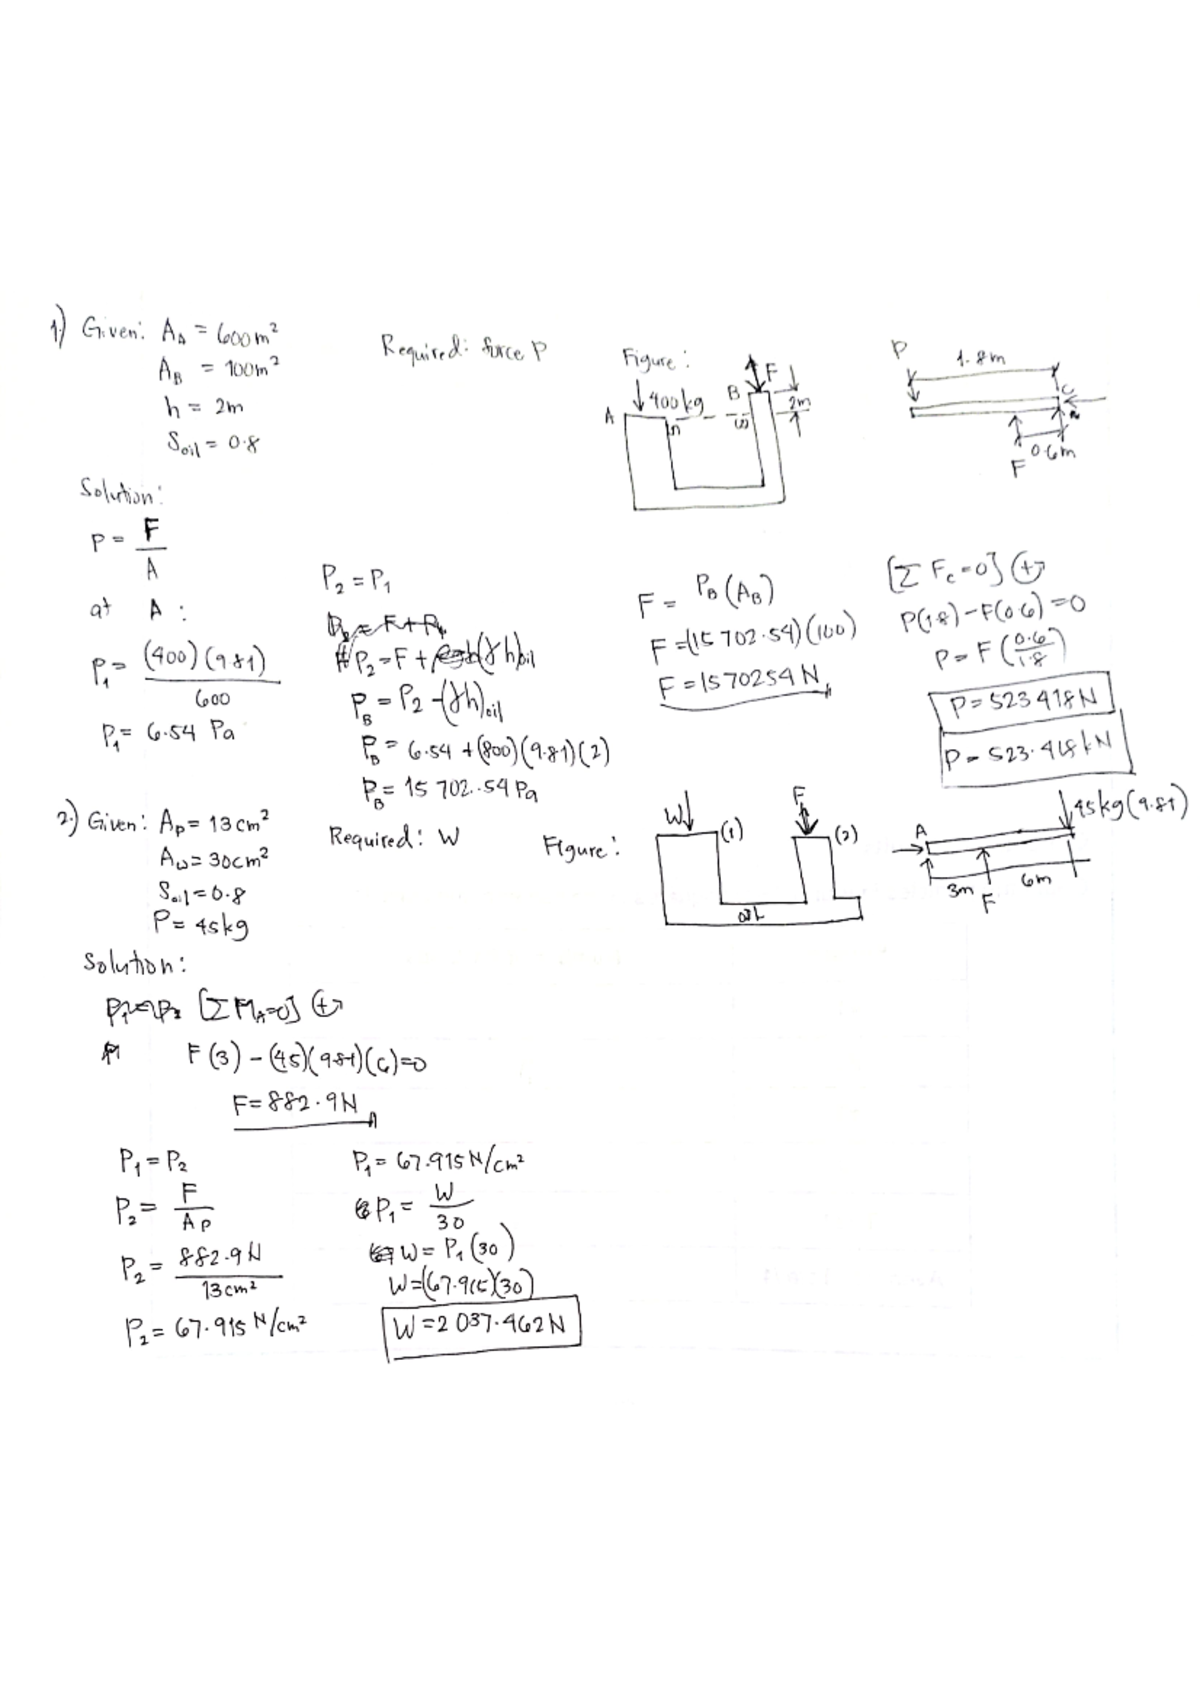 1.) Given: A_A = 600m² Required: force P Figure:
A_B = 100m²
h = 2m
S_oil = 0.8
A 400kg B F 2m
P 1.8m C
F 0.6m
Solution:
P = F/A
at A:
P_1 = (400)(9.81)/600
P_1 = 6.54 Pa
P_2 = P_1
P_2 = F + (γh)oil
P_B = P_2 - (γh)oil
P_B = 6.54 + (800)(9.81)(2)
P_B = 15 702.54 Pa
F = P_B (A_B)
F = (15 702.54)(100)
F = 1570254 N
[Σ F_c = 0] +
P(1.8) - F(0.6) = 0
P = F (0.6/1.8)
P = 523 418 N
P = 523.418 kN
2.) Given: A_p = 13cm² Required: W Figure:
A_w = 30cm²
S_oil = 0.8
P = 45kg
W (1) F (2)
oil
A 45kg(9.81)
3m F 6m
Solution:
[Σ M_A = 0] +
F(3) - (45)(9.81)(6) = 0
F = 882.9 N
P_1 = P_2
P_2 = F/A_P
P_2 = 882.9 N/13cm²
P_2 = 67.915 N/cm²
P_1 = 67.915 N/cm²
P_1 = W/30
W = P_1 (30)
W = (67.915)(30)
W = 2 037.462 N